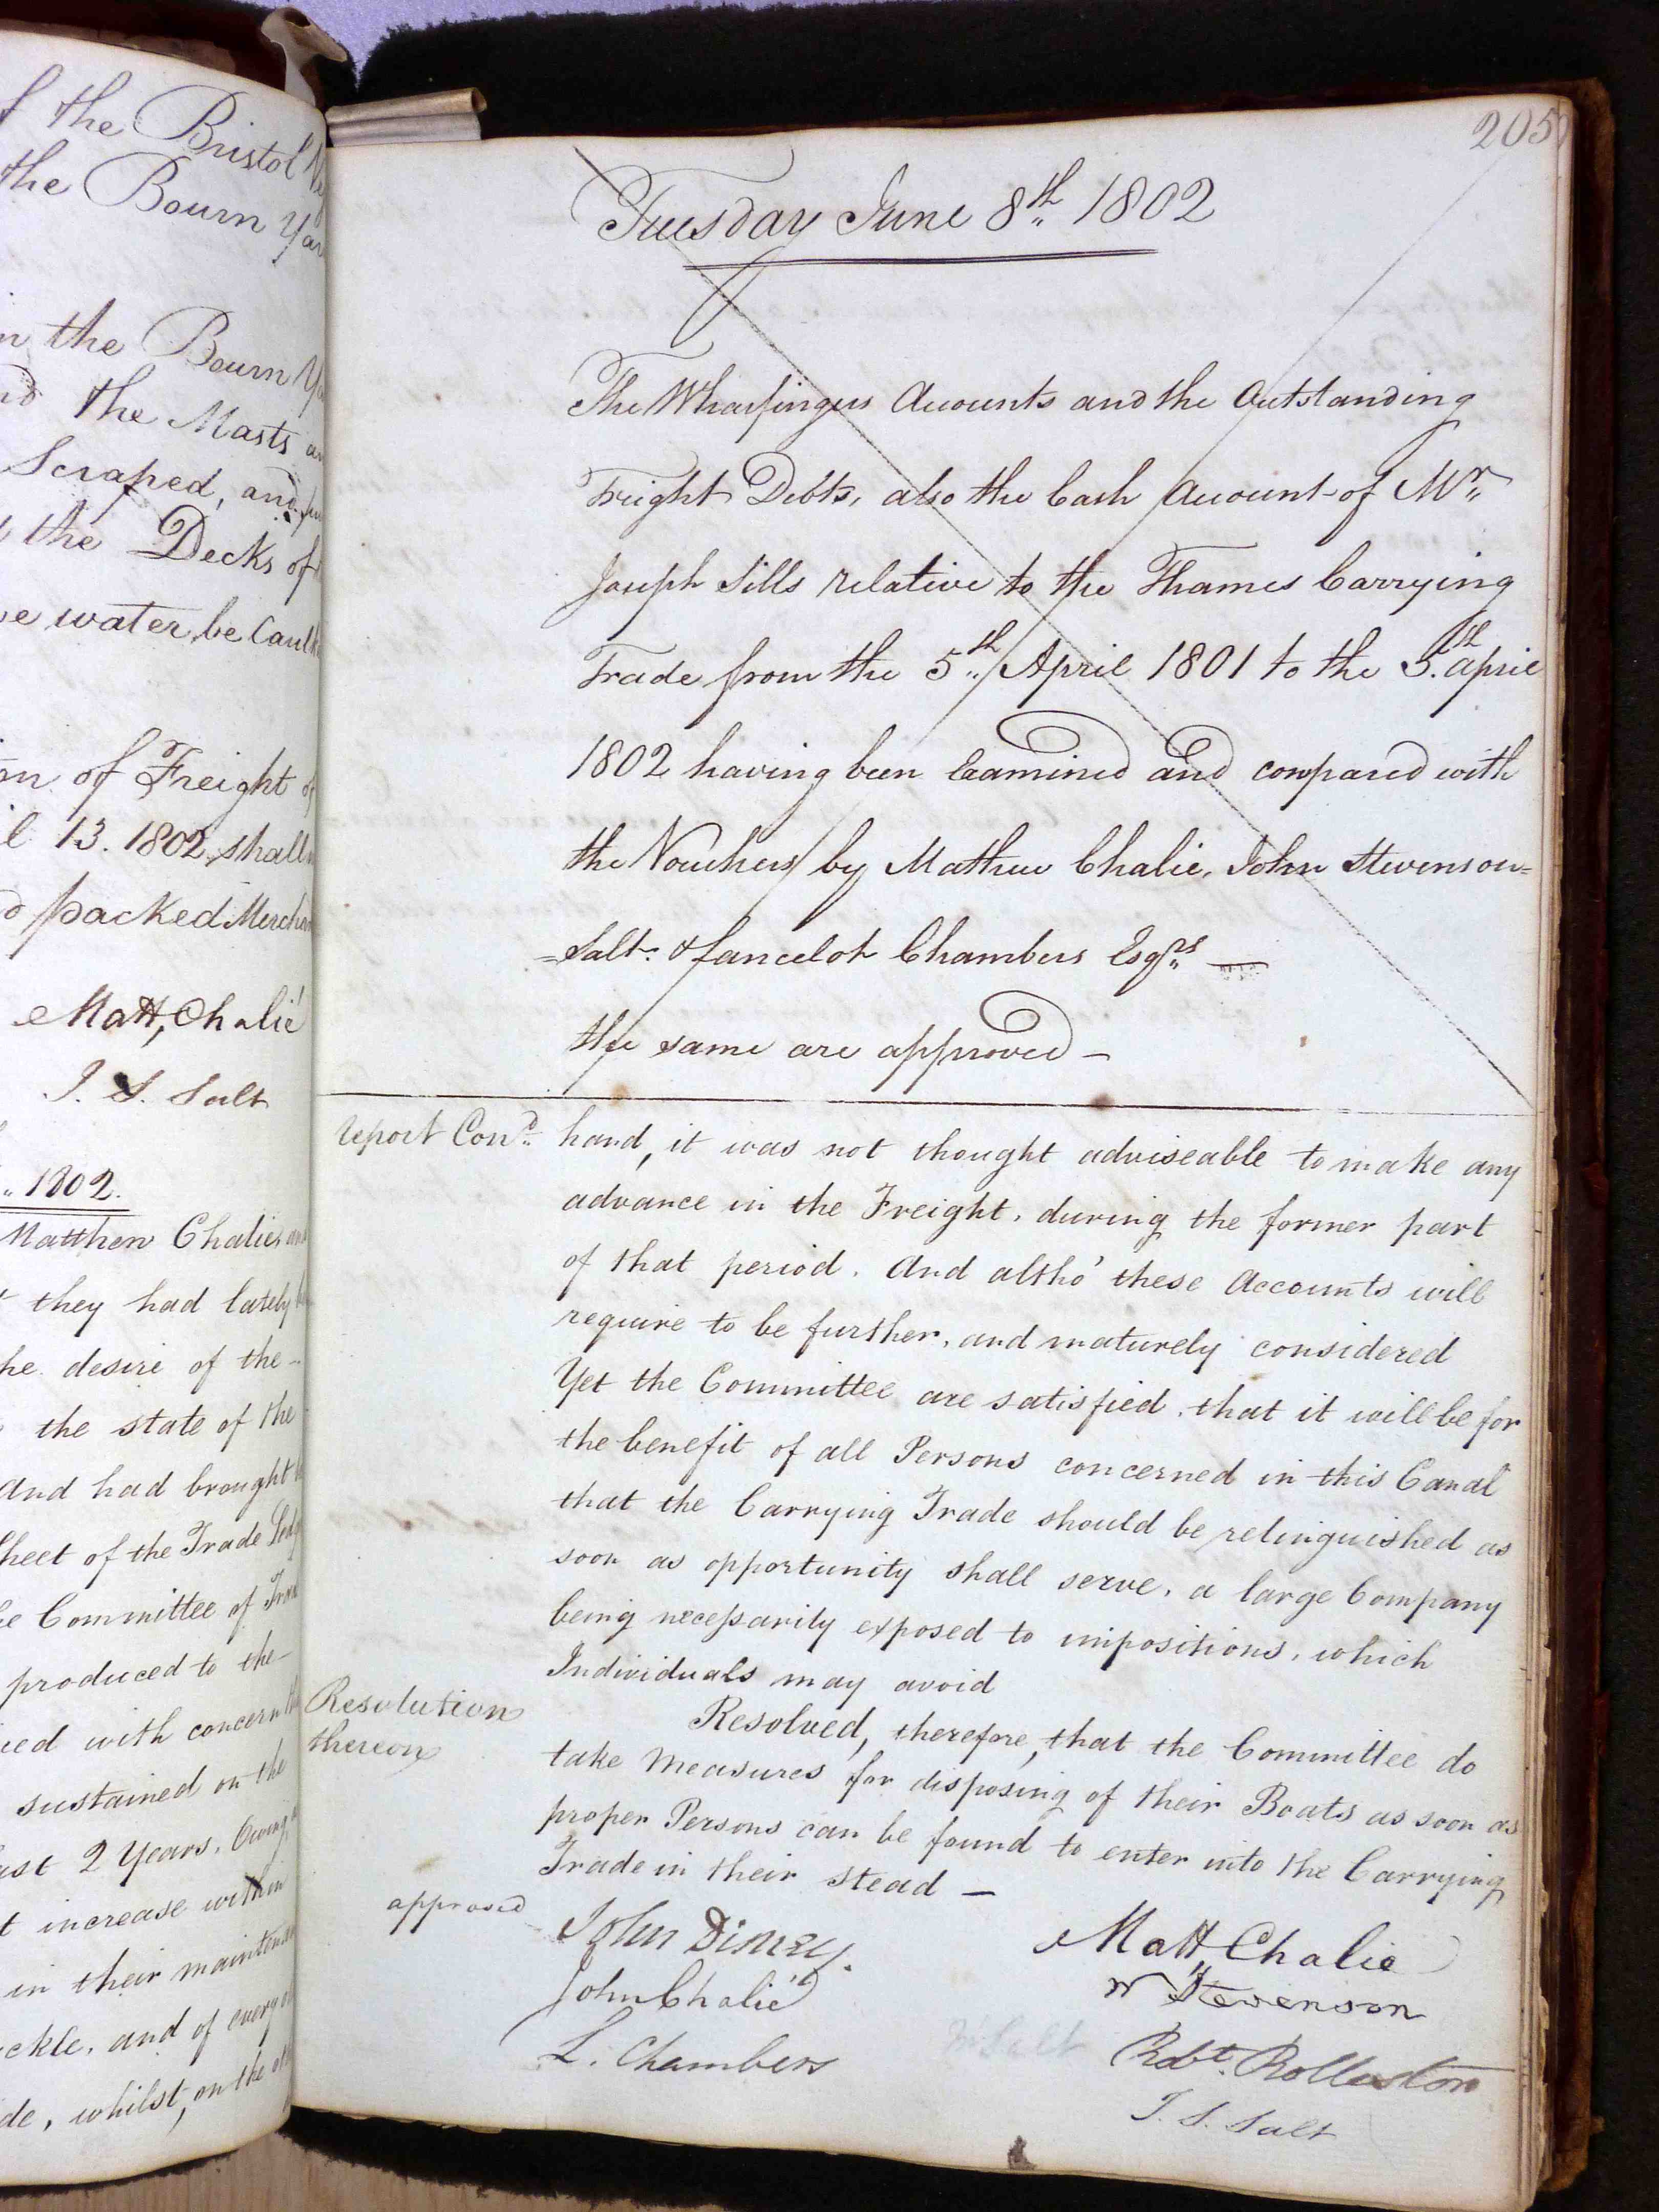 f the Bristol
the Bourn
n the Bourn
the Masts
Scraped, and
the Decks of
e water, be
of Freight
13. 1802 shall
packed
Matt, Chalié
J. S. Salt
1802.
Matthew Chalie
they had lately
he desire of the
the state of the
And had brought
Sheet of the Trade
Committee of
produced to the
ied with concern
sustained on the
ast 2 Years,
t increase within
in their
ckle, and of every
de, whilst, on the
205
Tuesday June 8th 1802
The Wharfingers Accounts and the Outstanding
Freight Debts, also the Cash Account of Mr
Joseph Sills relative to the Thames Carrying
Trade from the 5th April 1801 to the 5th April
1802 having been Examined and compared with
the Vouchers by Mathew Chalie, John Stevenson=
=Salt. & Lancelot Chambers Esqrs —
the same are approved —
report Cond. hand, it was not thought adviseable to make any
advance in the Freight, during the former part
of that period. And altho' these Accounts will
require to be further, and maturely considered
Yet the Committee are satisfied, that it will be for
the benefit of all Persons concerned in this Canal
that the Carrying Trade should be relinquished as
soon as opportunity shall serve, a large Company
being necessarily exposed to impositions, which
Individuals may avoid
Resolution
thereon
Resolved, therefore, that the Committee do
take Measures for disposing of their Boats as soon as
proper Persons can be found to enter into the Carrying
Trade in their stead —
approved
John Disney.
Matt, Chalie
John Chalié
W Stevenson
L. Chambers
Salt
Robt. Rolleston
J. S. Salt